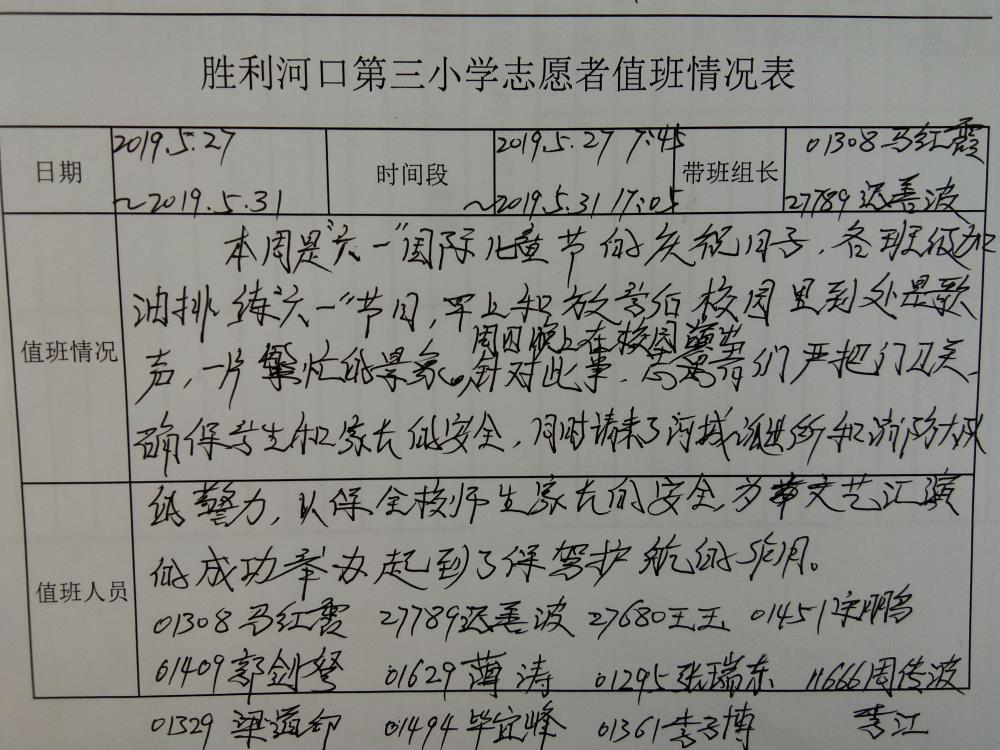 胜利河口第三小学志愿者值班情况表
日期 2019.5.27 ～2019.5.31 时间段 2019.5.27 7:45 ～2019.5.31 17:05 带班组长 01308马红霞 27789迟善波
值班情况
本周是"六一"国际儿童节的庆祝日子,各班级加
油排练"六一"节目,早上和放学后校园里到处是歌
周四晚上在校园
声,一片繁忙的景象。针对此事,志愿者们严把门卫关,
确保学生和家长的安全,同时请来了河城派出所和消防大队
值班人员
的警力,以保全校师生家长的安全,为文艺汇演
的成功举办起到了保驾护航的作用。
01308马红霞 27789迟善波 27680王玉 01451宋鹏
01409郭剑 01629薄涛 01295张瑞东 11666周传波
01329梁 01494毕宜峰 01361李博 李江